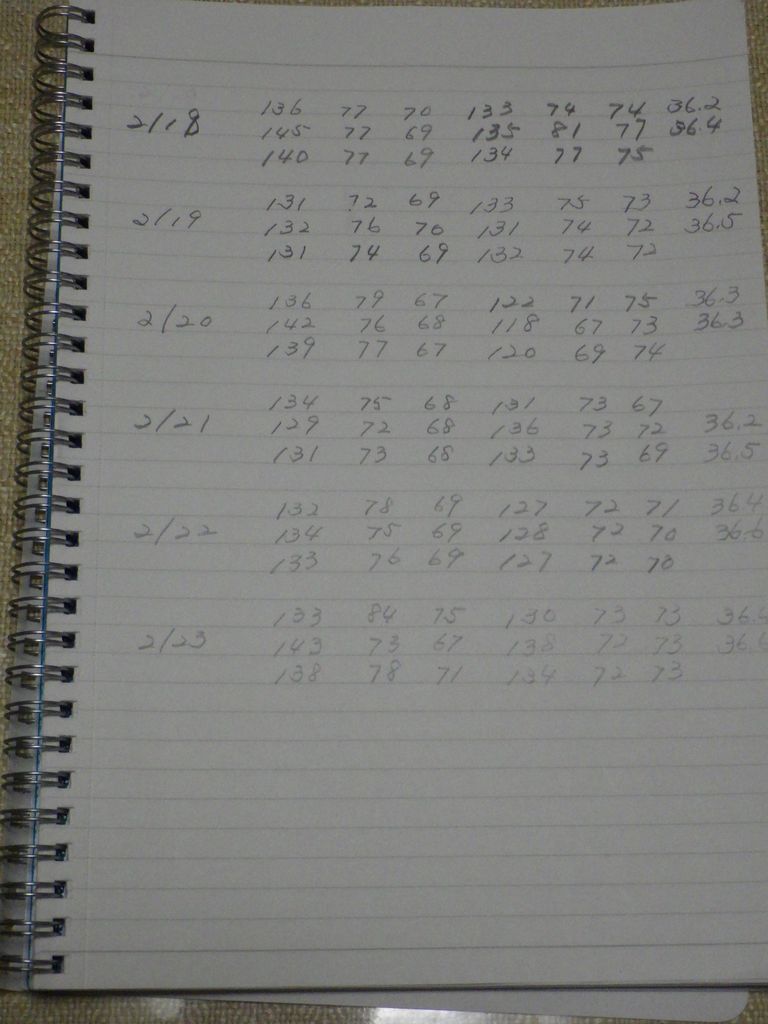 136 77 70 133 74 74 36.2
2/18 145 77 69 135 81 77 36.4
140 77 69 134 77 75
131 72 69 133 75 73 36.2
2/19 132 76 70 131 74 72 36.5
131 74 69 132 74 72
136 79 67 122 71 75 36.3
2/20 142 76 68 118 67 73 36.3
139 77 67 120 69 74
134 75 68 131 73 67
2/21 129 72 68 136 73 72 36.2
131 73 68 133 73 69 36.5
132 78 69 127 72 71 36.4
2/22 134 75 69 128 72 70 36.6
133 76 69 127 72 70
133 84 75 130 73 73
2/23 143 73 67 138 72 73 36.6
138 78 71 134 72 73